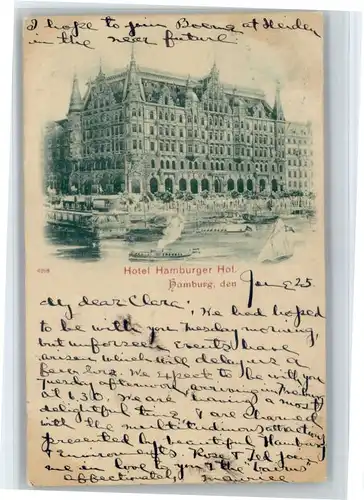 I hope to join Boeng at Heiden
in the near future.
Hotel Hamburger Hof.
Hamburg, den
June 25
My dear Clara: We had hoped
to be with you Tuesday morning,
but unforseen events have
arisen which will delay us a
few hrs. We expect to be with you
Tuesday afternoon arriving
at 1.30. We are having a most
delightful time & are charmed
with the multitudinous attractions
presented by beautiful Hamburg
& Environments. Rose & Ted join
me in love to you & the
affectionately, Maurice